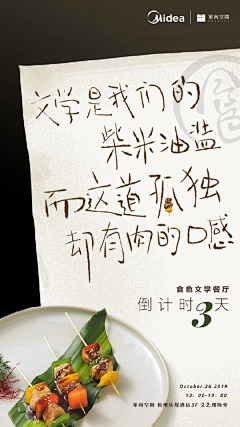 Midea
单向空间
文学是我们的
柴米油盐
而这道孤独
却有肉的口感
食色文学餐厅
倒计时3天
October.26.2019
13:00-19:00
单向空间 杭州乐堤港店3F 文艺现场旁